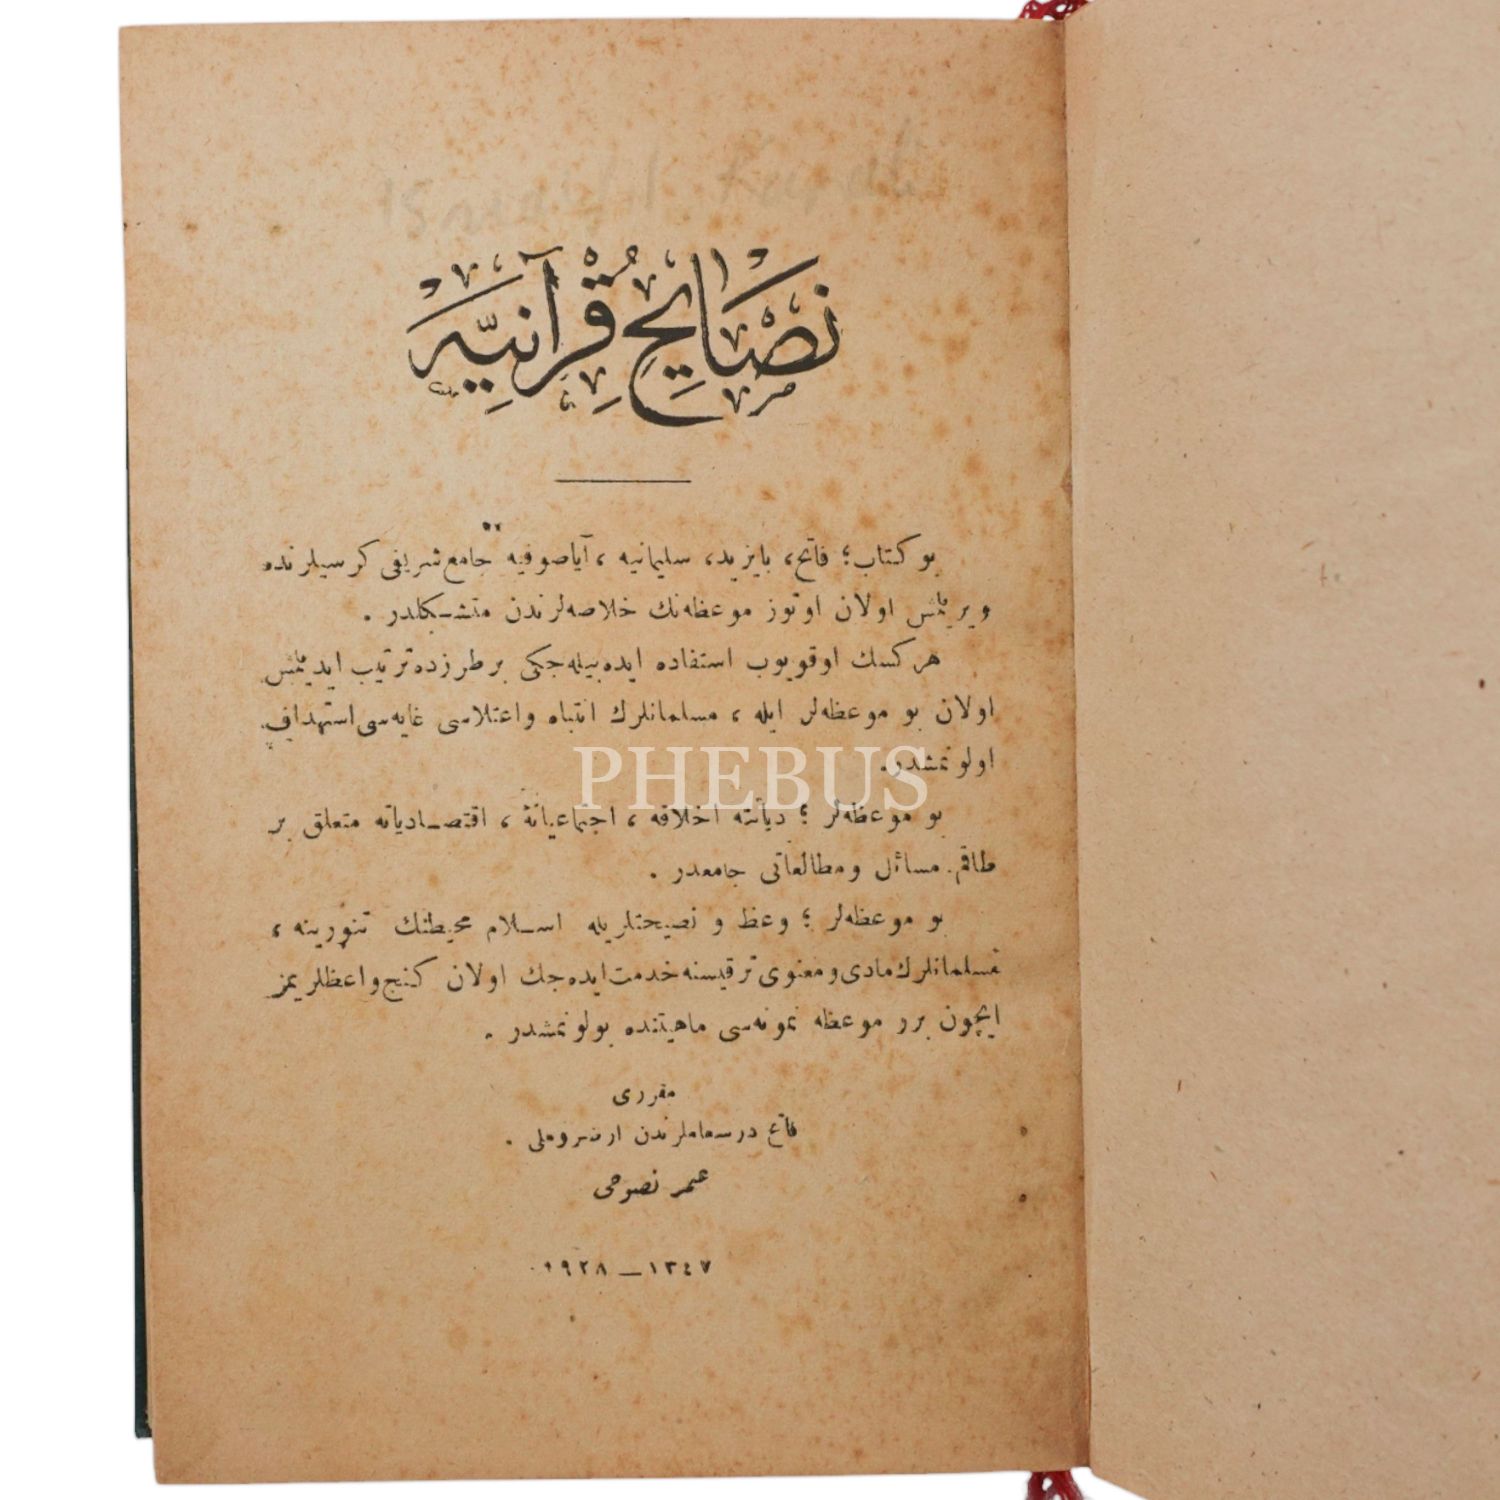 نَصَايِحِ قُرْآنِيَّه
بو كتاب؛ فاتح، بايزيد، سليمانيه، آياصوفيه جامع شريفى كرسيلرنده
ويريلمش اولان اوتوز موعظه‌نك خلاصه‌لرندن متشـكلدر.
هركسك اوقويوب استفاده ايده‌بيله‌جكى بر طرزده ترتيب ايديلمش
اولان بو موعظه‌لر ايله، مسلمانلرك انتباه واعتلاسى غايه‌سى استهداف
اولونمشدر.
بو موعظه‌لر؛ دياتته اخلاقه، اجتماعياته، اقتصـادياته متعلق بر
طاقم مسائل ومطالعاتى جامعدر.
بو موعظه‌لر؛ وعظ و نصيحتلريله اسـلام محيطنك تنويرينه،
مسلمانلرك مادى ومعنوى ترقيسنه خدمت ايده‌جك اولان كنج واعظلريمز
ايچون برر موعظه نمونه‌سى ماهيتنده بولونمشدر.
مقررى
فاتح درسعاملرندن ارضروملى
عمر نصوحى
١٣٤٧ — ١٩٢٨
PHEBUS